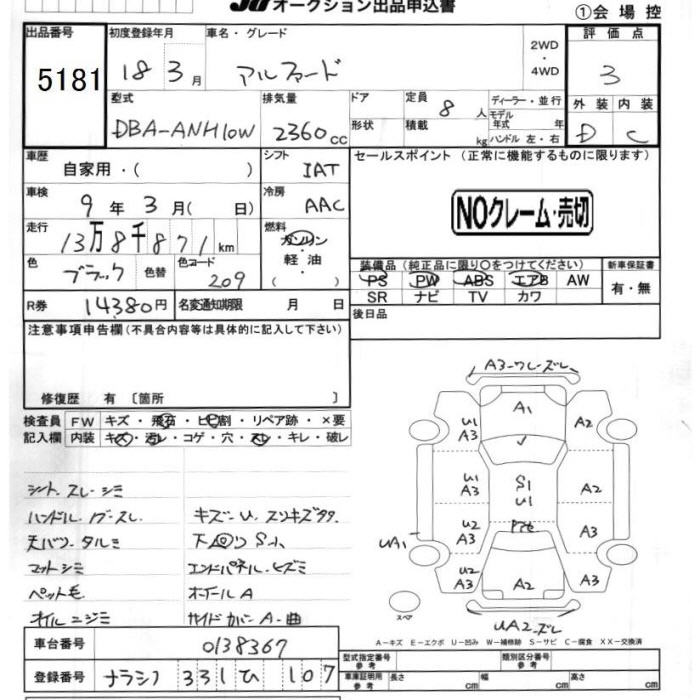 オークション出品申込書
①会場控
出品番号 5181
初度登録年月 18 3月
車名・グレード アルファード
2WD・4WD
評価点 3
外装 D 内装 C
型式 DBA-ANH10W
排気量 2360cc
ドア
形状
定員 8人
積載 kg
ディーラー・並行
モデル年式 年
ハンドル 左・右
車歴 自家用・( )
シフト IAT
セールスポイント (正常に機能するものに限ります)
車検 9年 3月( 日)
冷房 AAC
NOクレーム・売切
走行 13万8千871km
燃料 ガソリン
軽・油
( )
色 ブラック 色替
色コード 209
装備品 (純正品に限り○をつけてください)
PS PW ABS エアB AW
SR ナビ TV カワ
新車保証書
有・無
R券 14380円
名変通知期限 月 日
後日品
注意事項申告欄(不具合内容等は具体的に記入して下さい)
修復歴 有〔箇所 〕
検査員記入欄
FW キズ・飛石・ヒビ割・リペア跡・×要
内装 キズ・汚レ・コゲ・穴・スレ・キレ・破レ
シート スレ・シミ
ハンドル
キズ-U.
天バリ・タルミ
マットシミ
エンドパネル・ヒズミ
ペット毛
ホイールA
オイルニジミ
サイドカバーA-曲
A3-ワレ・ズレ
A1
U1 A3
A2
U1 A3
S1 U1
A2
U2 A3
A3
UA1
U2 A3
A2
A3
スペア
UA2-ズレ
A-キズ E-エクボ U-凹み W-補修跡 S-サビ C-腐食 XX-交換済
車台番号 0138367
登録番号 ナラシノ 331 ひ 107
型式指定番号
類別区分番号
車庫証明用参考
長さ cm
幅 cm
高さ cm